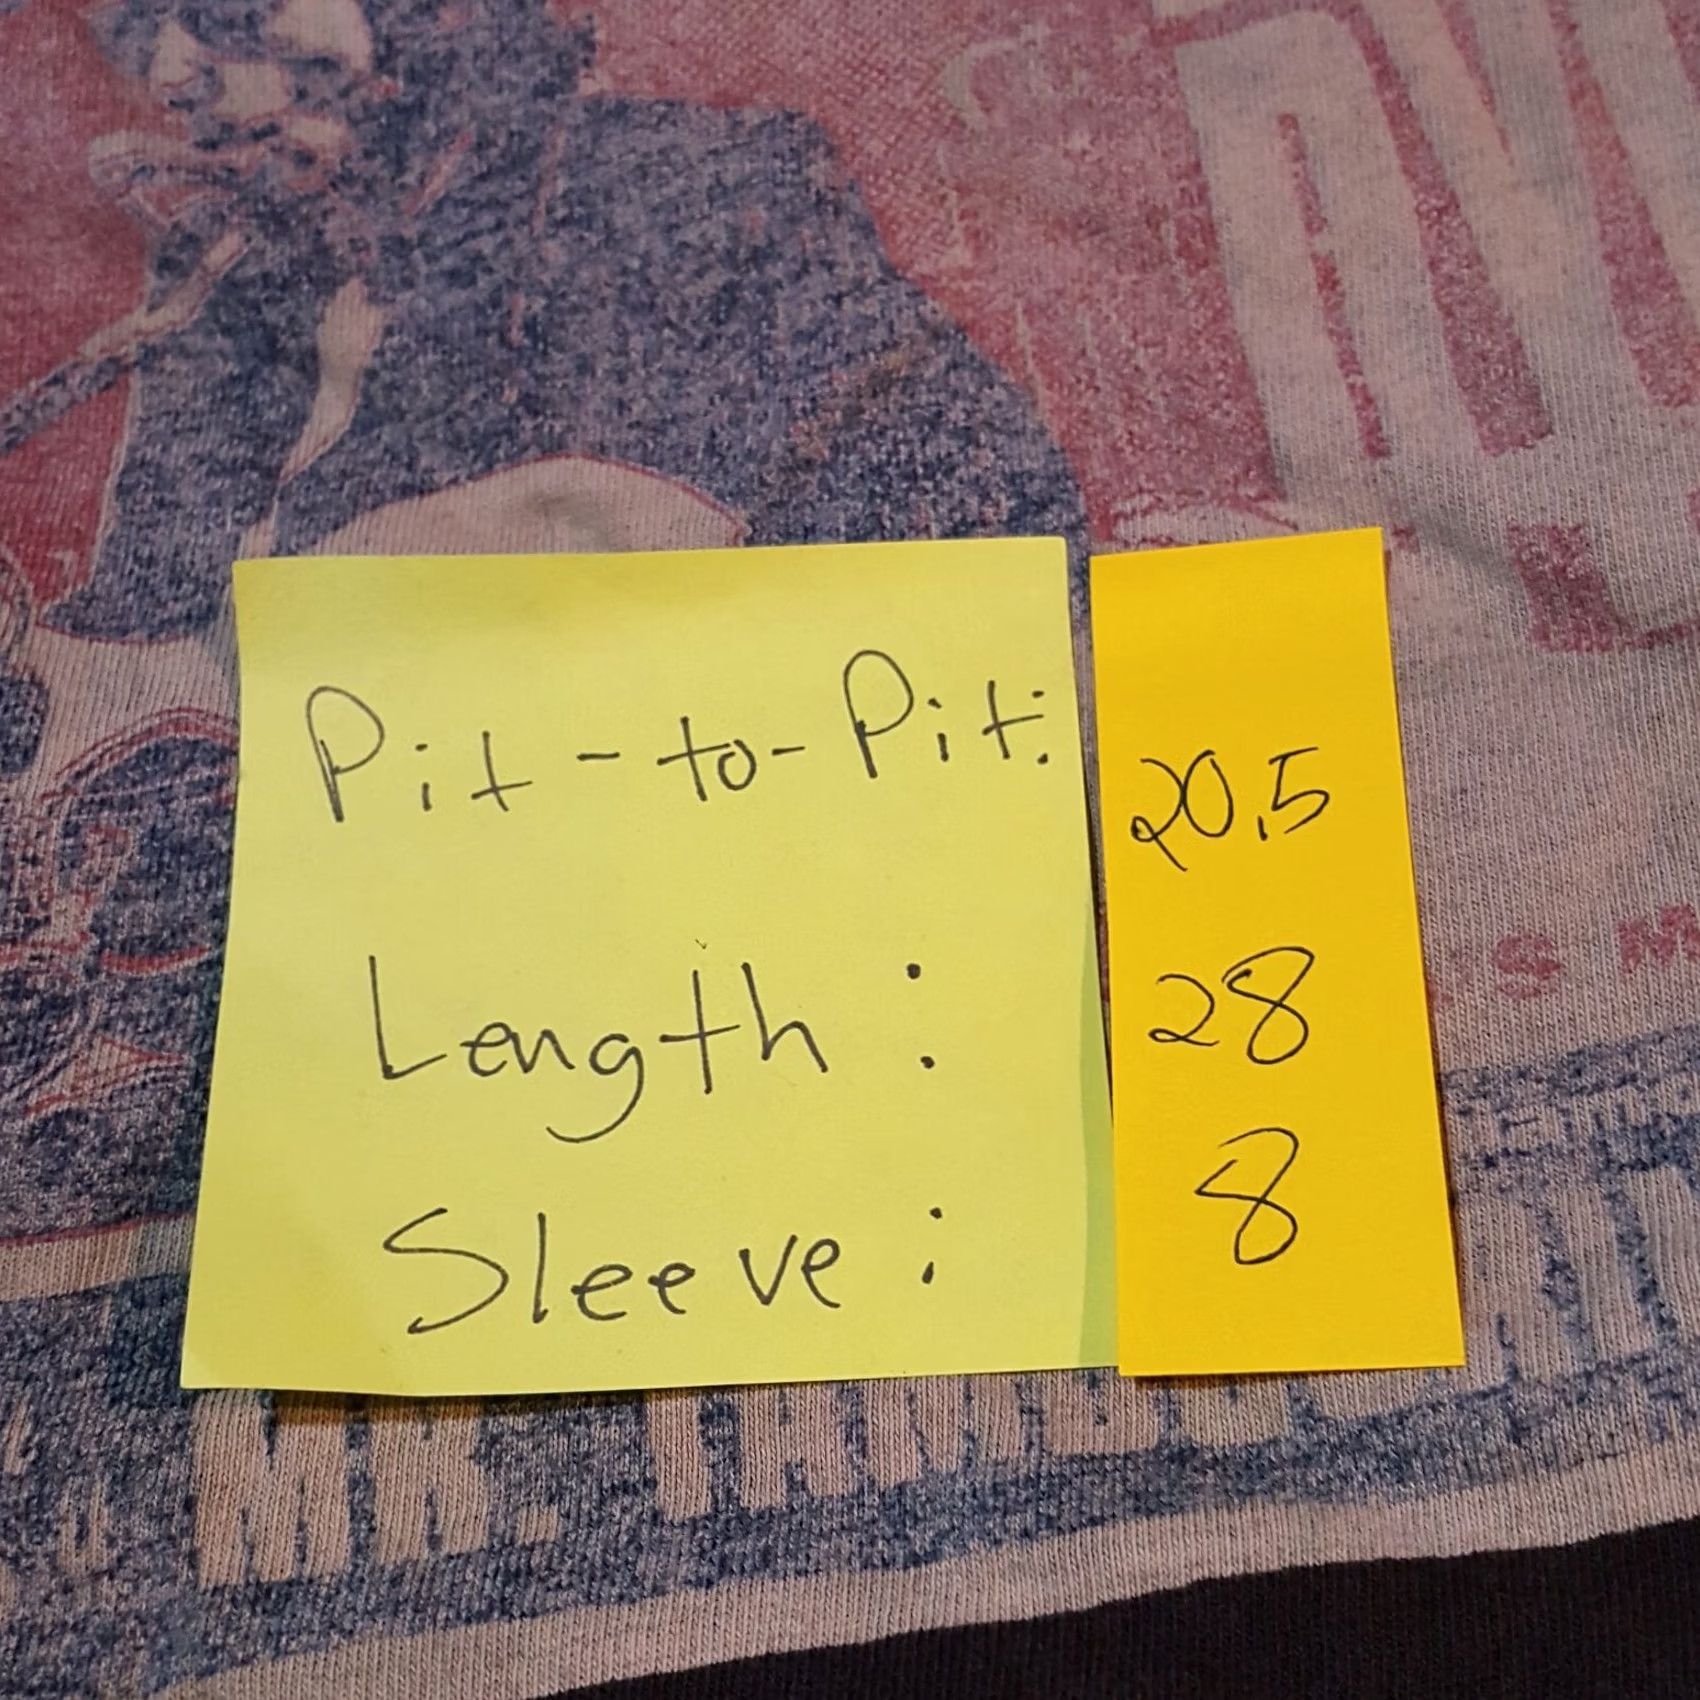 Pit-to-Pit: 20.5
Length: 28
Sleeve: 8
S M
MR. TAMBOU